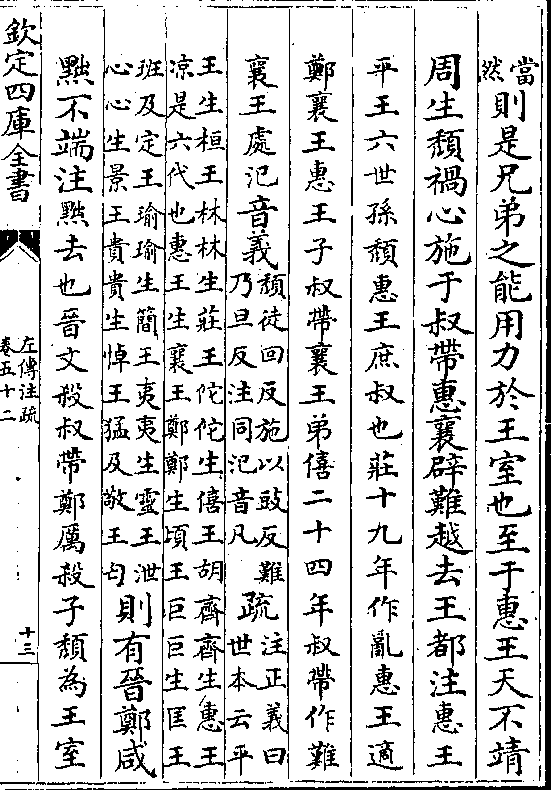 當然則是兄弟之能用力於王室也至于惠王天不靖
周生頽禍心施于叔帶惠襄辟難越去王都注惠王
平王六世孫頽惠王庶叔也莊十九年作亂惠王適
鄭襄王惠王子叔帶襄王弟僖二十四年叔帶作難
襄王處氾音義頽徒回反施以豉反難乃旦反注同氾音凡疏注正義曰世本云平
王生桓王林林生莊王陀陀生僖王胡齊齊生惠王
凉是六代也惠王生襄王鄭鄭生頃王巨巨生匡王
班及定王瑜瑜生簡王夷夷生靈王泄
心心生景王貴貴生悼王猛及敬王匄則有晉鄭咸
黜不端注黜去也晉文殺叔帶鄭厲殺子頽為王室
欽定四庫全書
左傳注疏
卷五十二
十三